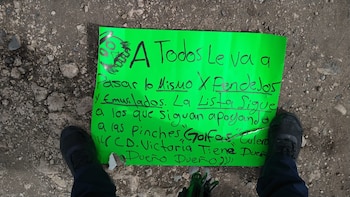 A Todos Le va a
Pasar lo Mismo X Pendejos
Y Emusilados. La Lista Sigue
a los que siguan apoyando a
a las pinches, Golfas,
CD. Victoria Tiene Dueño
Dueño Dueño